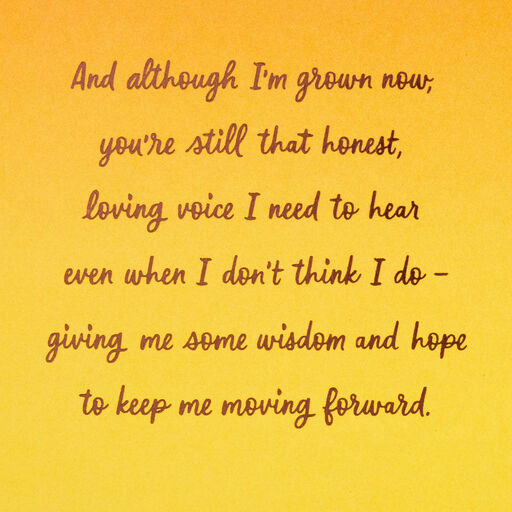 And although I'm grown now,
you're still that honest,
loving voice I need to hear
even when I don't think I do –
giving me some wisdom and hope
to keep me moving forward.